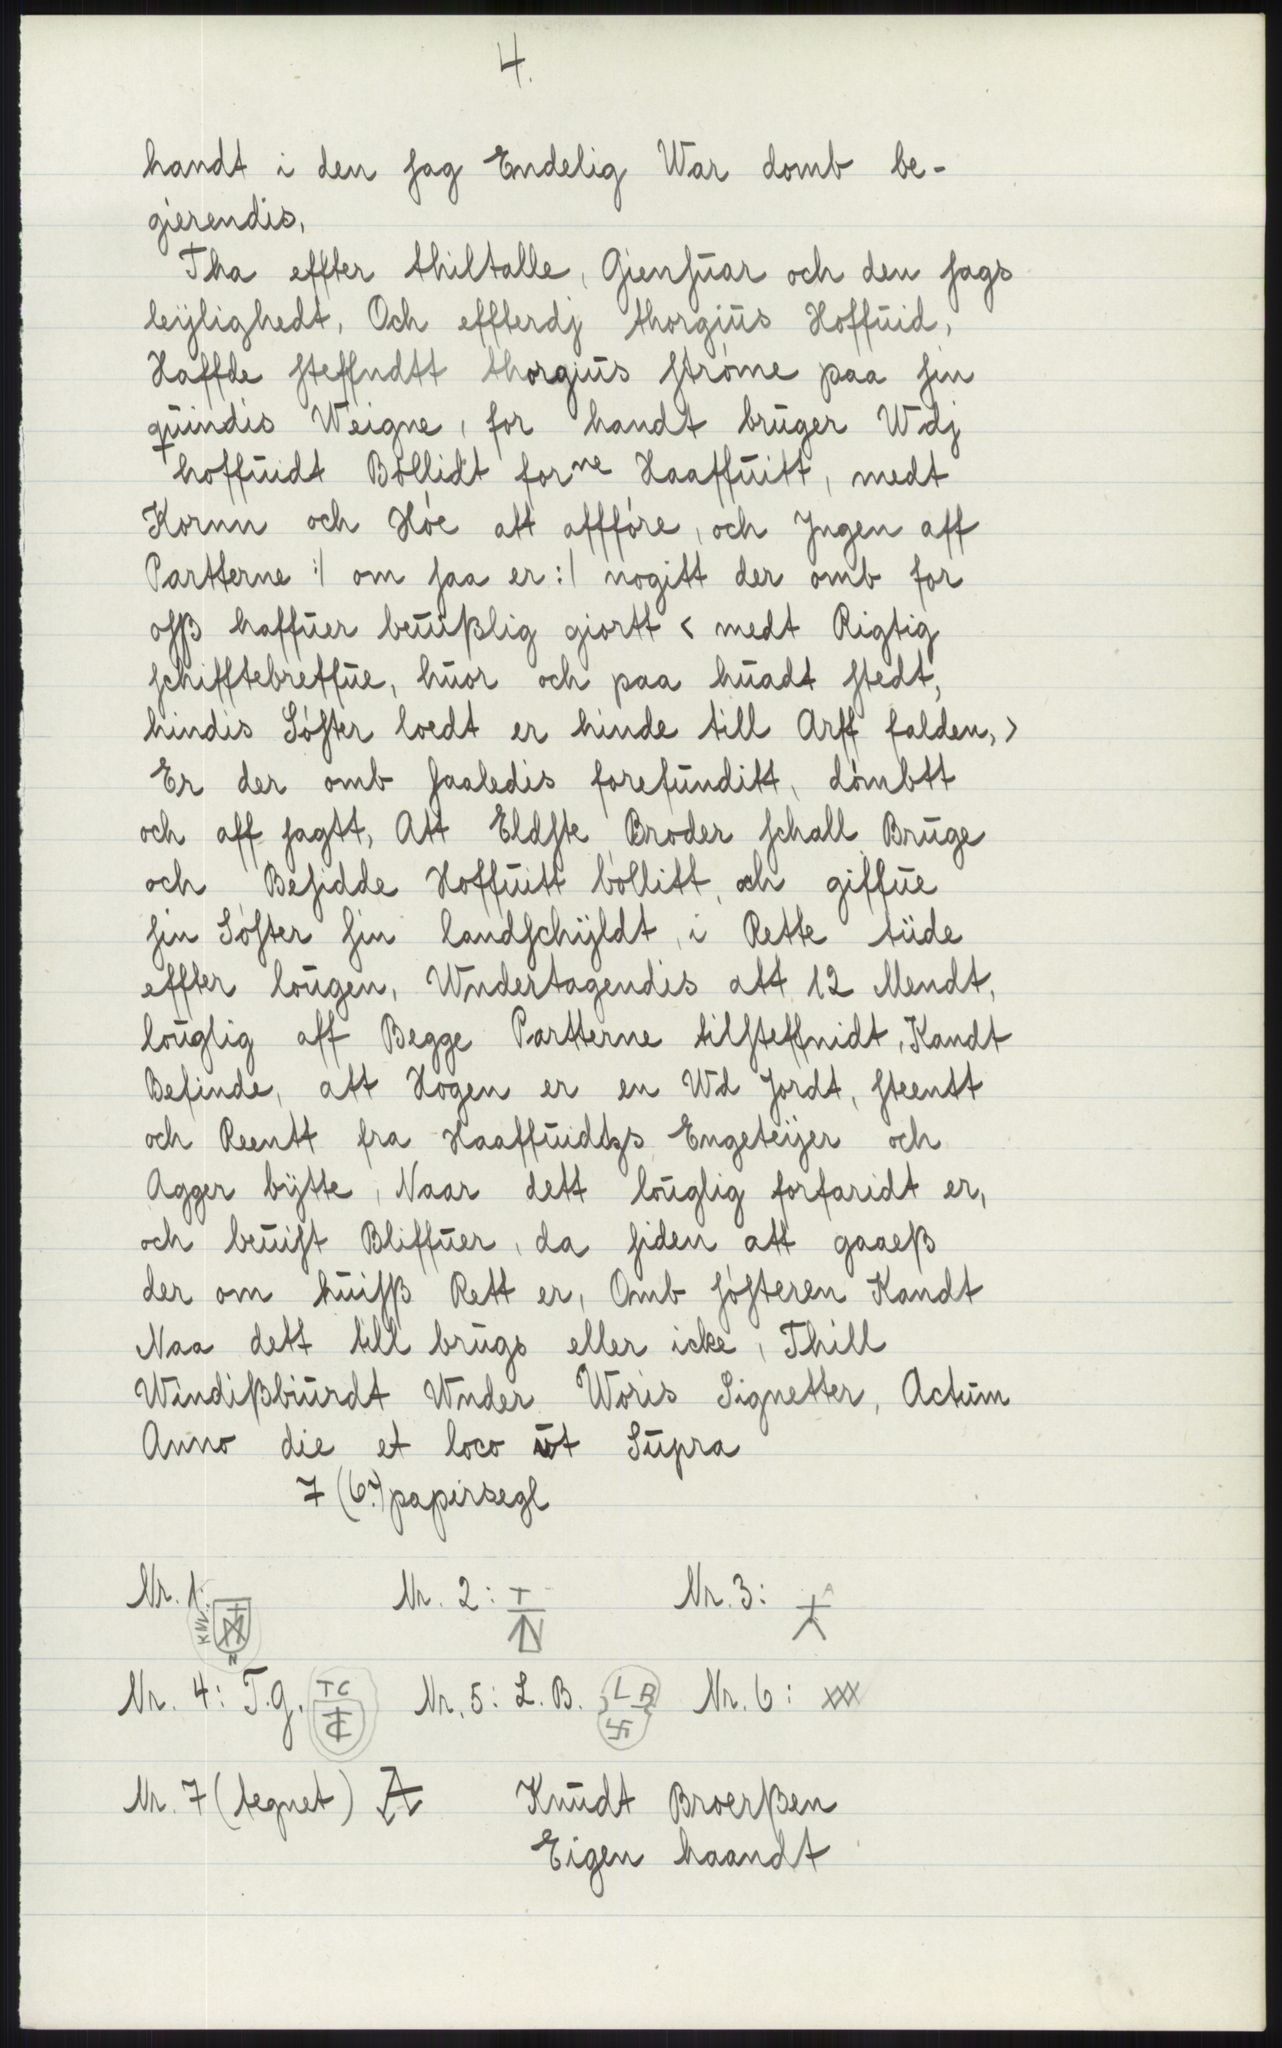 4.
handt i den sag Endelig War domb be-
gierendis,
Tha effter thiltalle, Giensuar och den sags
leÿlighedt, Och effterdj thorgius Hoffuid,
Haffde steffndtt thorgius ströme paa sin
quindis Weigne, for handt bruger Wdj
hoffuidt Böllidt forne Haaffuitt, medt
Kornn och Höe att afföre, och Jngen aff
Partterne :/ om saa er :/ nogitt der omb for
osß haffuer beuißlig giortt < medt Rigtig
schifftebreffue, huor och paa huadt stedt,
hindis Söster loedt er hinde till Arff falden, >
Er der omb saaledis forefunditt, dömbtt
och aff sagtt, Att Eldste Broder schall Bruge
och Besidde Hoffuitt böllitt, och giffue
sin Söster sin landschÿldt, i Rette tiide
effter lougen, Wndertagendis att 12 Mendt,
louglig aff Begge Partterne tilsteffnidt, Kandt
Befinde, att Hogen er en Wd Jordt, steentt
och Reentt fra Haaffuidtzs Engeteÿer och
Agger bÿtte, Naar dett louglig forfaridt er,
och beuist Bliffuer, da siden att gaaeß
der om huisß Rett er, Omb sösteren Kandt
Naa dett till brugs eller icke, Thill
Windißbiurdt Wnder Woris Signetter, Actum
Anno die et loco ut Supra
7 (6?) papirsegl
Nr. 1: KNN Nr. 2: T Nr. 3:
Nr. 4: T.G. TC Nr. 5: L.B. L B Nr. 6: XXX
Nr. 7 (tegnet) Knudt Broerßen
Eigen haandt